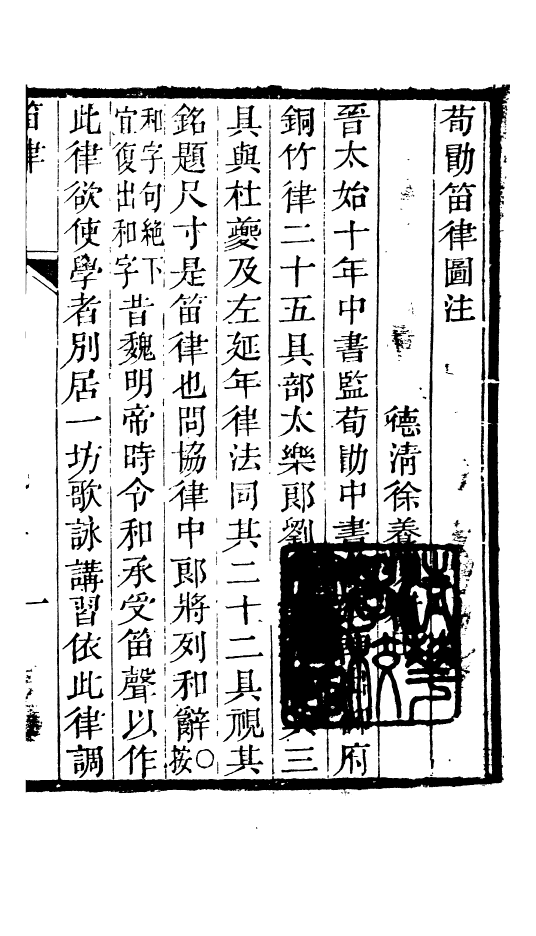 荀勖笛律圖注
德清徐養
晉太始十年中書監荀勖中書府
銅竹律二十五具部太樂郎劉三
具與杜夔及左延年律法同其二十二具視其
銘題尺寸是笛律也問協律中郎將列和辭○按
和字句絶下
宜復出和字昔魏明帝時令和承受笛聲以作
此律欲使學者別居一坊歌詠講習依此律調
笛律
一